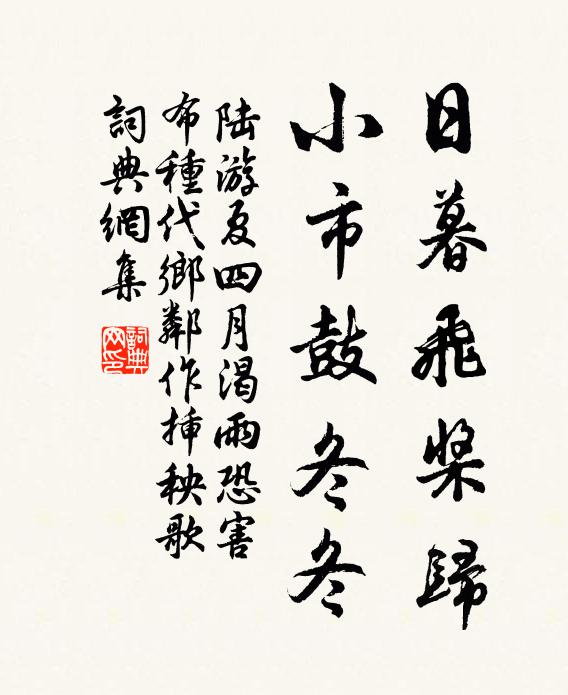 日暮飛槳歸
小市鼓冬冬
陆游夏四月渴雨恐害
布種代鄉鄰作插秧歌
詞典網集
詞典网印